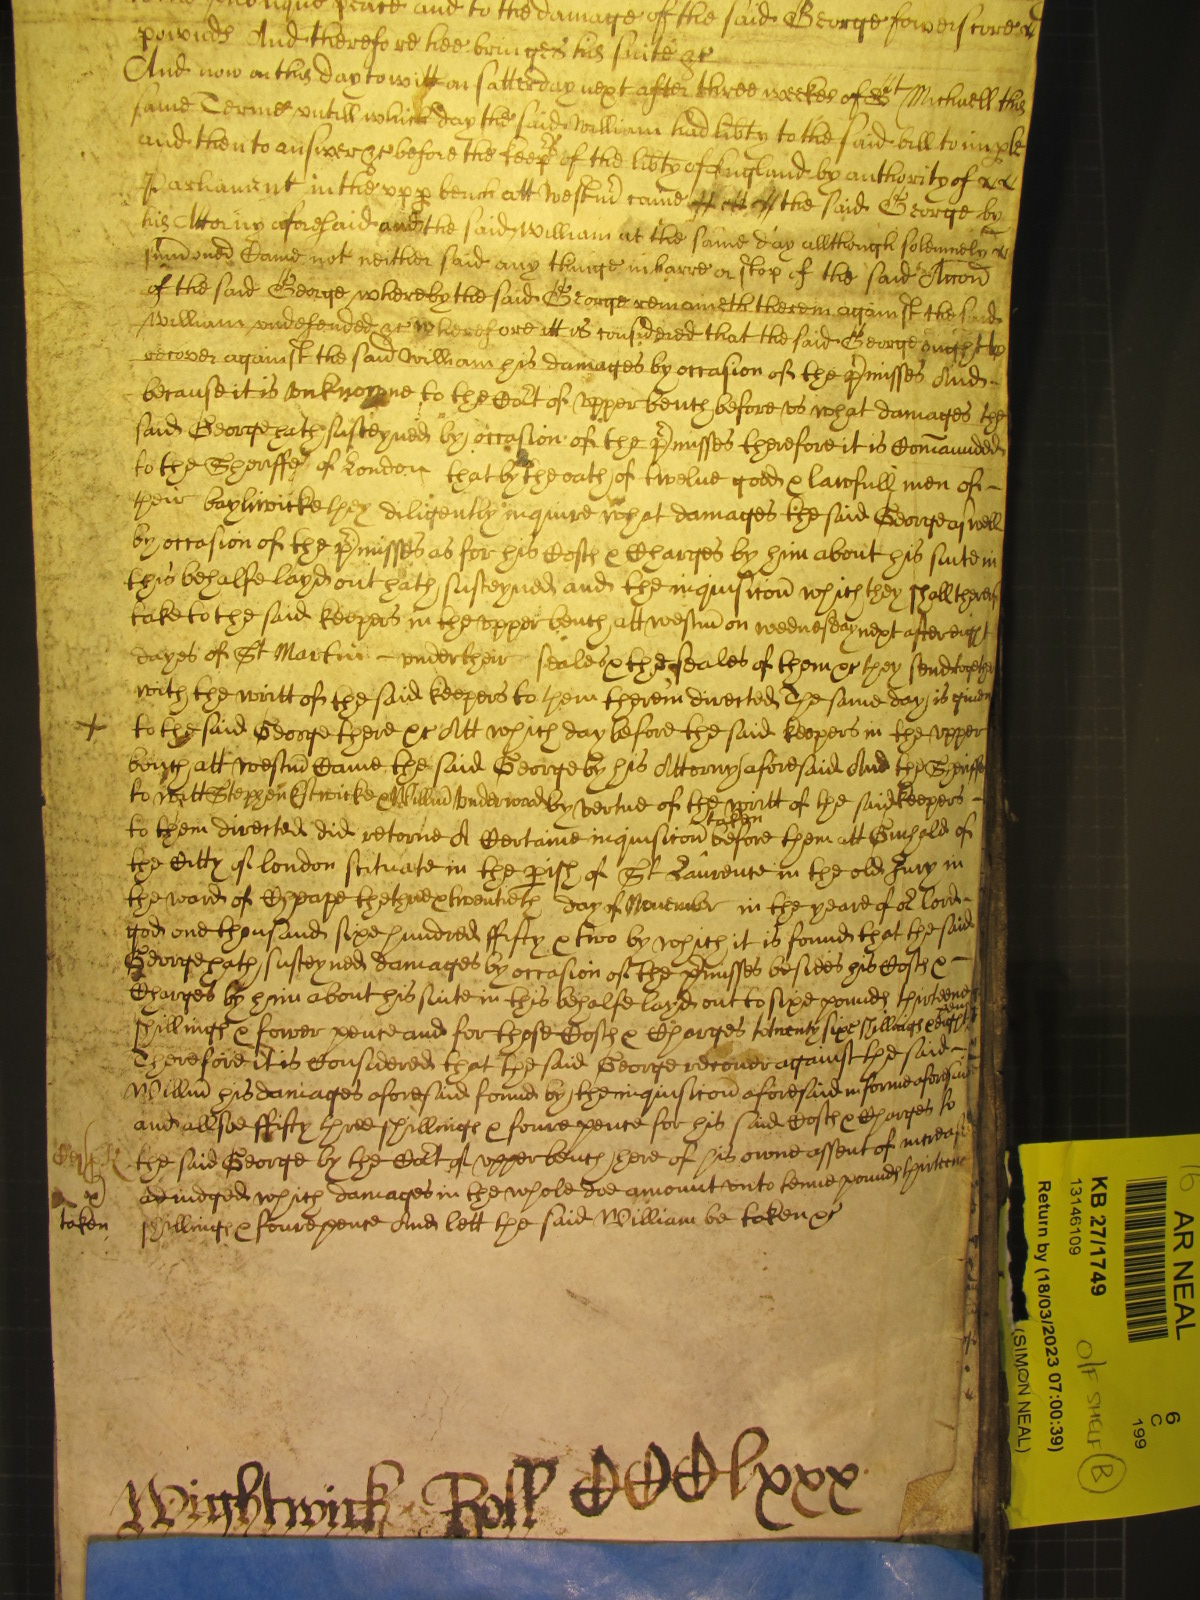 publique peace and to the damage of the said George fowerscore
pownds And therefore hee bringes his suite &c
And now on this day to witt on satterday next after three weekes of St Michaell this
same Terme untill which day the said William had libty to the said bill to imple
and then to answer &c before the keeps of the libty of England by authority of
Parliament in the upp bench att Westm came the said George by
his Attorny aforesaid and the said William at the same day allthough solemnely
summoned Came not neither said any thinge in barre or stop of the said Accon
of the said George whereby the said George remaineth therein against the said
William undefended &c wherefore itt is considered that the said George ought to
recover against the said William his damages by occasion of the pmisses And
because it is unknowne to the Cort of upper bench before us what damages the
said George hath susteyned by occasion of the pmisses therefore it is Comaunded
to the Sheriffes of London that by the oath of twelve good & lawfull men of
their bayliwicke they diligently inquire what damages the said George as well
by occasion of the pmisses as for his Costs & Charges by him about his suite in
this behalfe layd out hath susteyned and the inquisicon which they shall thereof
take to the said keepers in the upper bench att westm on wednesday next after eight
dayes of St Martin under their seales & the seales of them &c they send together
with the writt of the said keepers to them therein directed The same day is given
+ to the said George there &c Att which day before the said keepers in the upper
bench att westm Came the said George by his Attorny aforesaid And the Sheriffes
to witt Stephen Estwicke & Willm Underwood by vertue of the writt of the said keepers
to them directed did retorne A Certaine inquisicon taken before them att Guihald of
the Citty of London scituate in the pish of St Laurence in the old Jury in
the ward of Cheape the two & twentieth day of November in the yeare of or Lord
god one thousand sixe hundred ffifty & two by which it is found that the said
George hath susteyned damages by occasion of the pmisses besides his Costs &
Charges by him about his suite in this behalfe layd out to sixe pounds thirteene
shillings & fower pence and for those Costs & Charges to twenty sixe shillings & eight pence
Therefore it is Considered that the said George recover against the said
Willm his damages aforesaid found by the inquisicon aforesaid in forme aforesaid
and allsoe ffifty three shillings & foure pence for his said Costs & Charges to
the said George by the Cort of upper bench here of his owne assent of increase
adiudged which damages in the whole doe amount unto tenne pounds thirteene
taken shillings & foure pence And lett the said William be taken &c
Wightwick Roll CCClxxx
AR NEAL
6
C
199
KB 27/1749
13146109
O/F SHELF B
Return by (18/03/2023 07:00:39)
(SIMON NEAL)